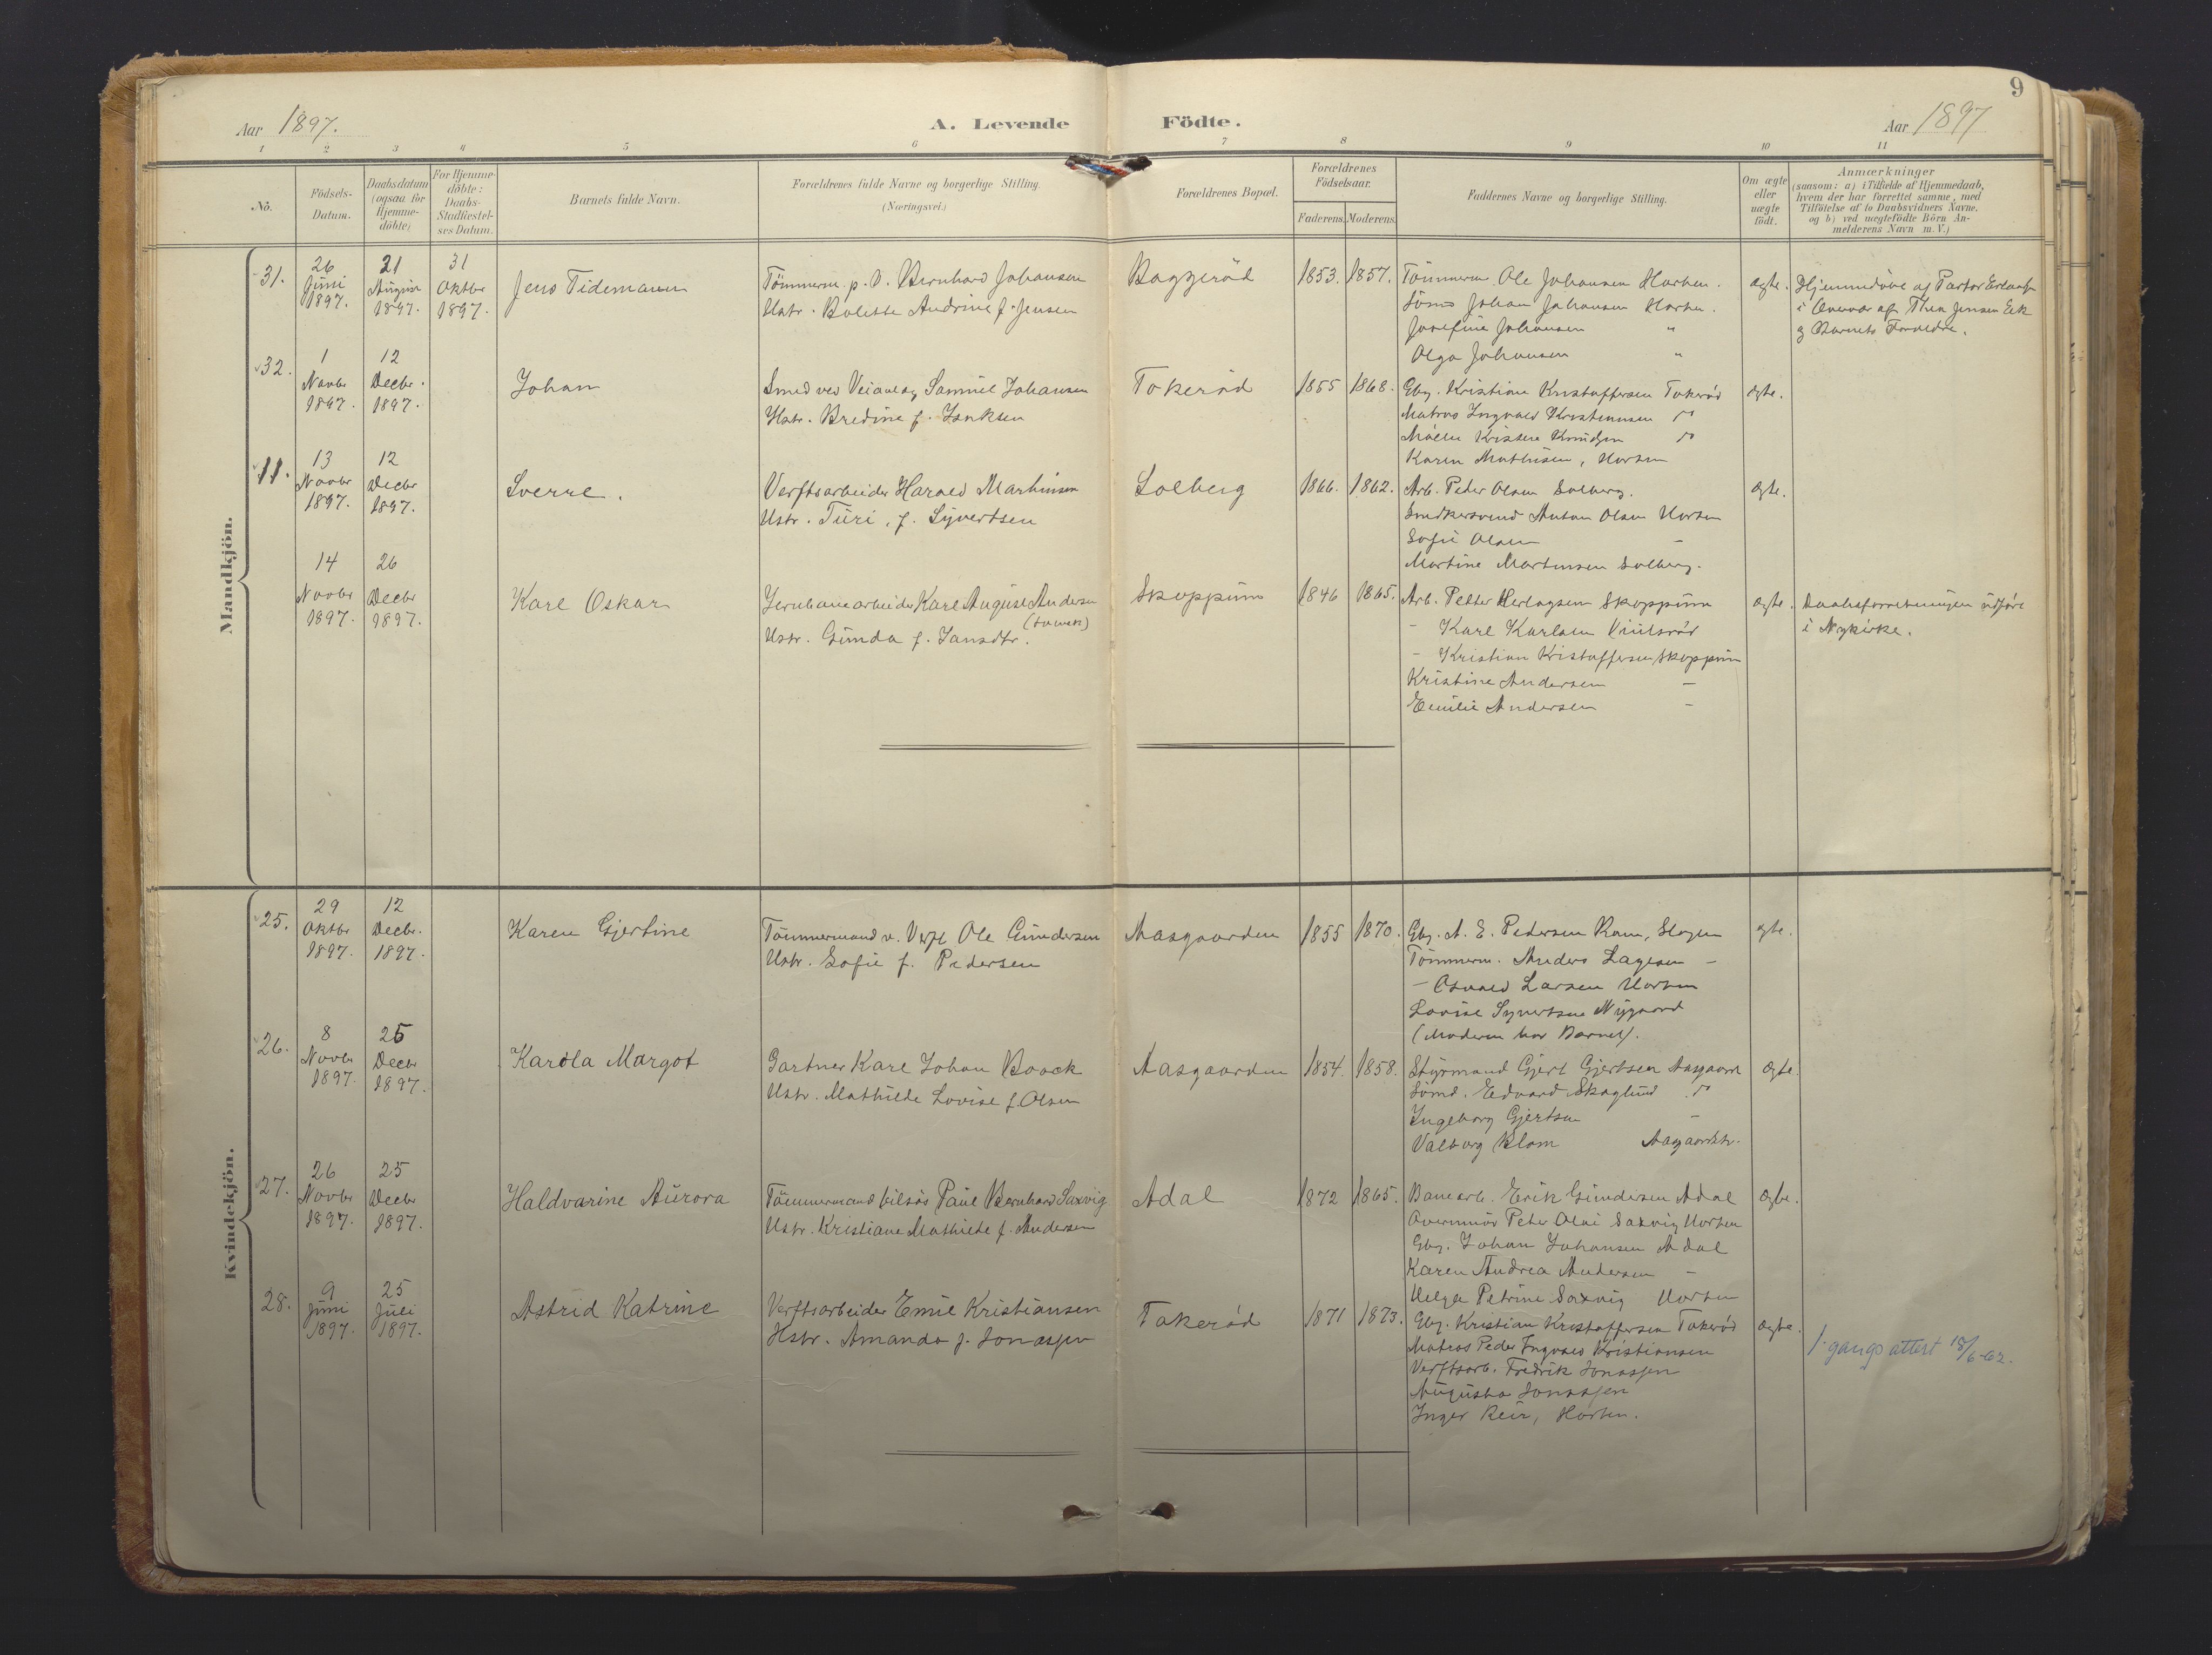 9
Aar 1897.
A. Levende Födte.
Aar 1897
1 2 3 4 5 6 7 8 9 10 11
No.
Födsels-
Datum.
Daabsdatum
(ogsaa for
Hjemme-
döbte)
For Hjemme-
döbte:
Daabs-
Stadfæstel-
ses Datum.
Barnets fulde Navn.
Forældrenes fulde Navne og borgerlige Stilling.
(Næringsvei.)
Forældrenes Bopæl.
Forældrenes
Födselsaar.
Faderens.
Moderens.
Faddernes Navne og borgerlige Stilling.
Om ægte
eller
uægte
födt.
Anmærkninger
(saasom: a) i Tilfælde af Hjemmedaab,
hvem der har forrettet samme, med
Tilföielse af to Daabsvidners Navne.
og b) ved uægtefödte Börn An-
melderens Navn m. V.)
Mandkjön.
31.
26
Juni
1897.
21
August
1897.
31
Oktbr
1897.
Jens Tidemann
Tömmerm. p. V. Bernhard Johansen
Hstr. Bolette Andrine f. Jensen
Baggeröd
1853.
1857.
Tömmerm. Ole Johansen Horten.
Johan Johansen Horten.
Josefine Johansen "
Olga Johansen "
ægte.
Hjemmedöbt af Pastor
i Overvær af Thea Jensen Eik
og Barnets Forældre.
32.
1
Novbr
1897.
12
Decbr.
1897.
Johan
Smed ved Samuel Johansen
Hstr. Bredine f. Isaksen
Tokeröd
1855
1868.
Gbg. Kristian Kristoffersen Tokeröd
Matros Ingvald Kristiansen "
Kristine Knudsen "
Karen Mathisen, Horten
ægte.
11.
13
Novbr
1897.
12
Decbr
1897.
Sverre.
Verftsarbeider Harald Martinsen
Hstr. Turi, f. Syvertsen
Solberg
1866.
1862.
Arb. Peder Olsen Solberg.
Snedkersvend Anton Olsen Horten
Sofie Olsen -
Martine Martinsen Solberg.
ægte.
14
Novbr
1897.
26
Decbr
1897.
Karl Oskar
Jernbanearbeider Karl August Andersen
(svensk)
Hstr. Gunda f. Jansdtr.
Skoppum
1846
1865.
Arb. Petter Herlagsen Skoppum
- Karl Karlsen
- Kristian Kristoffersen Skoppum
Kristine Andersen -
Emilie Andersen -
ægte.
Daabsforretningen udfört
i Nykirke.
Kvindekjön.
25.
29
Oktbr
1897.
12
Decbr.
1897.
Karen Gjertine
Tömmermand v. Verft Ole Gundersen
Hstr. Sofie f. Pedersen
Aasgaarden
1855
1870.
Gbg. A. E. Pedersen Ram, Slagen
Tömmerm. Anders Lagesen -
- Osvald Larsen Horten
Lovise Syvertsen Nygaard
(Moderen bar Barnet).
ægte.
26.
8
Novbr
1897.
25
Decbr
1897.
Karola Margot
Gartner Karl Johan Boock
Hstr. Mathilde Lovise f. Olsen
Aasgaarden
1854.
1858.
Styrmand Gjert Gjertsen Aasgaard
Sömd. Edvard Skoglund "
Ingeborg Gjertsen -
Valborg Blom Aasgaardstr.
ægte.
27.
26
Novbr
1897.
25
Decbr
1897.
Haldvarine Aurora
Tömmermand tilsös Paul Bernhard Saxvig
Hstr. Kristiane Mathilde f. Andersen
Adal
1872
1865.
Banearb. Erik Gundersen Adal
Peter Olai Saxvig Horten
Gbg. Johan Johansen Adal
Karen Andrea Andersen -
Helga Petrine Saxvig Horten
ægte.
28.
9
Juni
1897.
25
Juli
1897.
Astrid Katrine
Verftsarbeider Emil Kristiansen
Hstr. Amanda f. Jonassen
Tokeröd
1871
1873.
Gbg. Kristian Kristoffersen Tokeröd
Matros Peder Ingvald Kristiansen
Verftsarb. Fredrik Jonassen
Augusta Jonassen
Inger Reir, Horten.
ægte.
1. gangs attest 18/6-62.